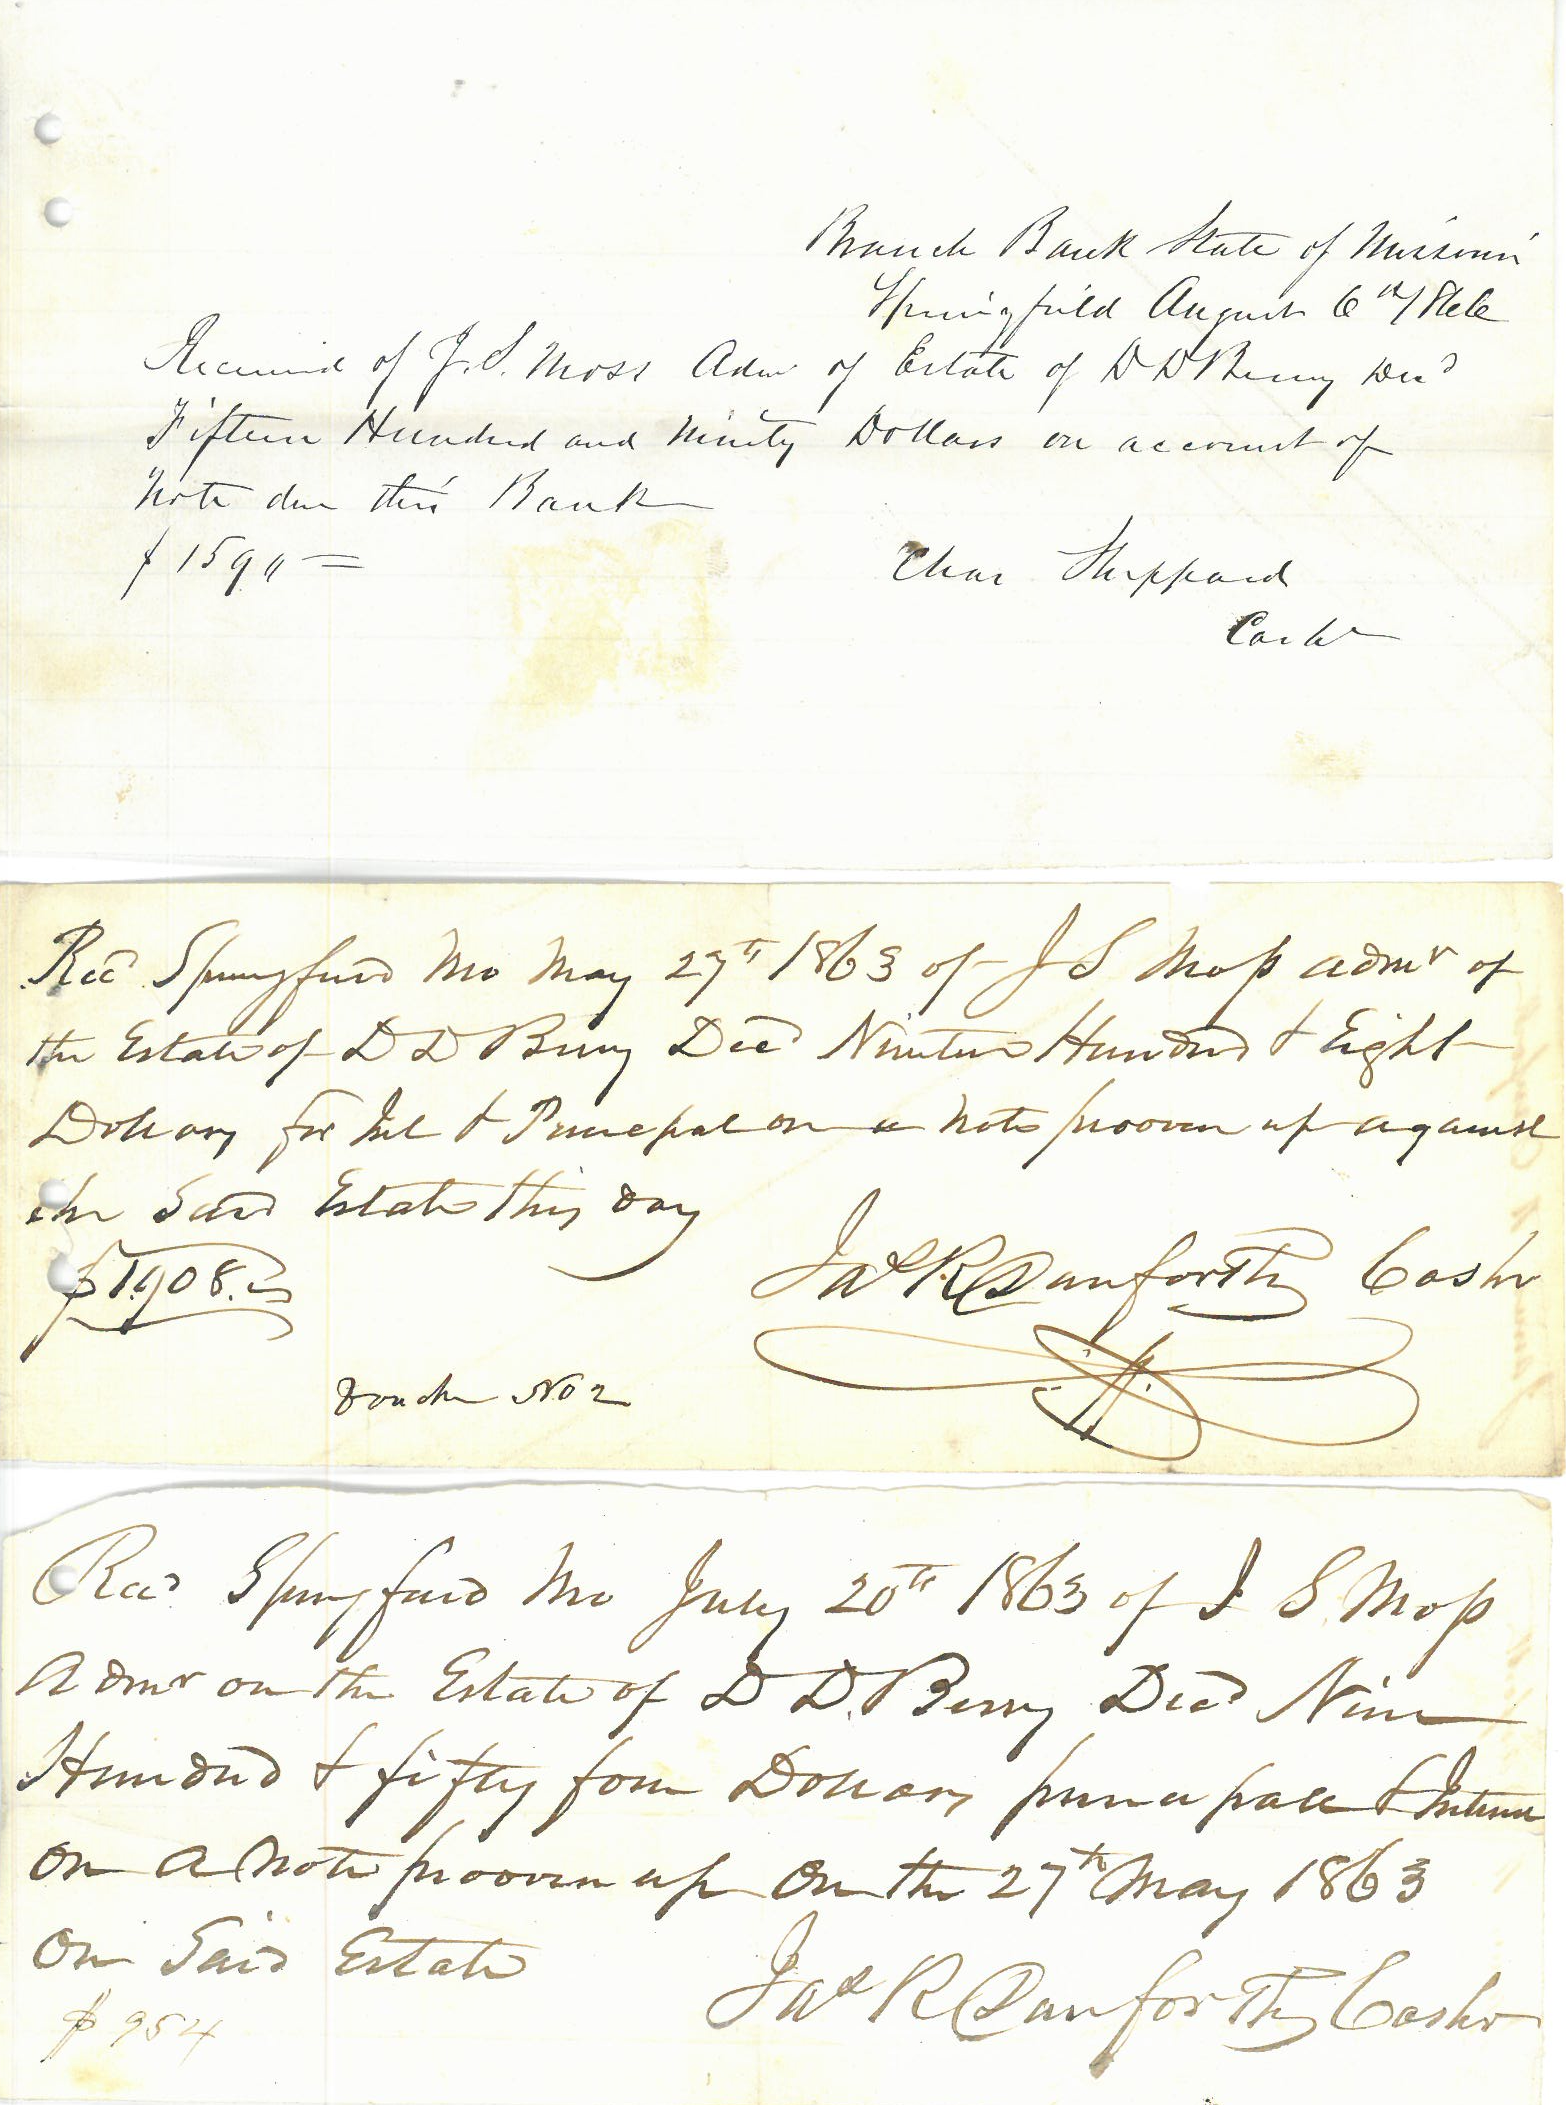 Branch Bank State of Missouri
Springfield August 6th / 1866
Received of J. S. Moss Adm of Estate of D D Berry Decd
Fifteen Hundred and Ninety Dollars on account of
Note due this Bank
$ 1590 =
Chas Sheppard
Cashr
Recd Springfield Mo May 27th 1863 of J S Moss admr of
the Estate of D D Berry Decd Nineteen Hundred & Eight
Dollars for Int & Principal on a Note prooven up against
the Said Estate this day
$1908.
Jas R Danforth Cashr
Voucher No 2
Recd Springfield Mo July 20th 1863 of J S Moss
Admr on the Estate of D D. Berry Decd Nine
Hundred & fifty four Dollars principall & Interest
on a Note prooven up on the 27th May 1863
on Said Estate
$ 954
Jas R Danforth Cashr